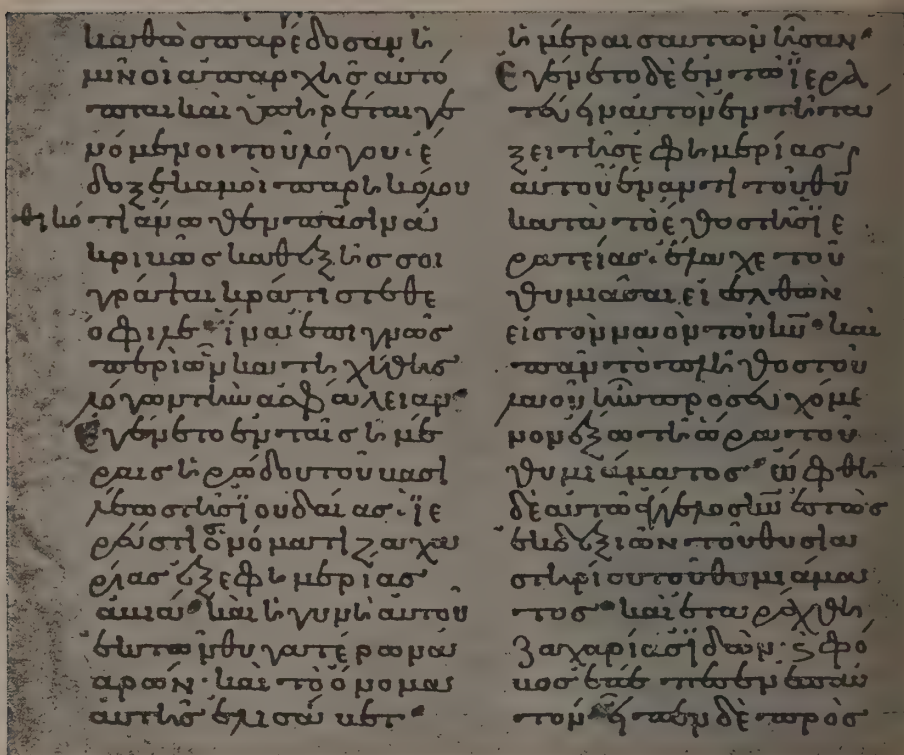 καθὼς παρέδοσαν ἡ
μῖν οἱ ἀπαρχῆς αὐτό
πται καὶ ὑπηρέται γε
νόμενοι τοῦ λόγου· ἔ
δοξε κἀμοὶ παρηκολου
θηκότι ἄνωθεν πᾶσιν ἀ
κριβῶς καθεξῆς σοι
γράψαι κράτιστε θε
όφιλε· ἵνα ἐπιγνῶς
περὶ ὧν κατηχήθης
λόγων τὴν ἀσφάλειαν·
Ἐγένετο ἐν ταῖς ἡμέ
ραις ἡρώδου τοῦ βασι
λέως τῆς ϊουδαίας· ϊε
ρεύς τις ὀνόματι ζαχα
ρίας ἐξ ἐφημερίας
ἀβιά· καὶ ἡ γυνὴ αὐτοῦ
ἐκ τῶν θυγατέρων ἀ
αρών· καὶ τὸ ὄνομα
αὐτῆς ἐλισάβετ·
ἡμέραις αὐτῶν ἦσαν·
Ἐγένετο δὲ ἐν τῶ ϊερα
τεύειν αὐτὸν ἐν τῆ τά
ξει τῆς ἐφημερίας
αὐτοῦ ἔναντι τοῦ θ̅υ̅
κατὰ τὸ ἔθος τῆς ϊε
ρατείας· ἔλαχε τοῦ
θυμιᾶσαι εἰσελθὼν
εἰς τὸν ναὸν τοῦ κ̅υ̅· καὶ
πᾶν τὸ πλῆθος τοῦ
λαοῦ ἦν προσευχόμε
νον ἔξω τῆ ὥρα τοῦ
θυμιάματος· ὤφθη
δὲ αὐτῶ ἄγγελος κ̅υ̅ ἑστὼς
ἐκ δεξιῶν τοῦ θυσια
στηρίου τοῦ θυμιάμα
τος· καὶ ἐταράχθη
ζαχαρίας ϊδών· ϗ φό
βος ἐπέπεσεν ἐπ αὐ
τόν· εἶπεν δὲ πρὸς